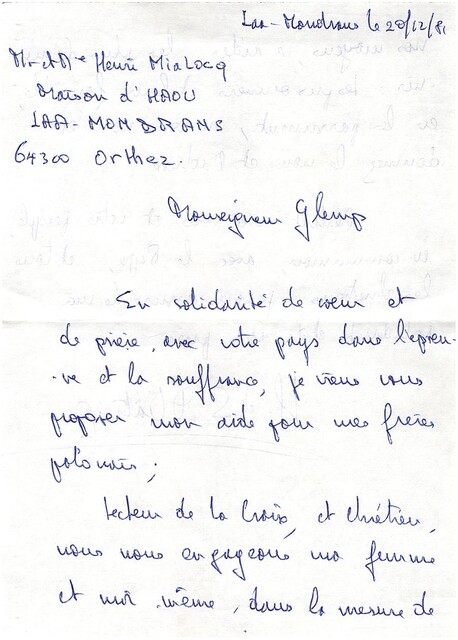 Laa-Mondrans le 20/12/81
Mr et Mme Henri MiaLocq
Maison d'HAOU
LAA-MONDRANS
64300 Orthez.
Monseigneur Glemp
En solidarité de coeur et
de prière, avec votre pays dans l'épreu-
-ve et la souffrance, je viens vous
proposer mon aide pour mes frères
polonais;
Lecteur de la Croix, et chrétien,
nous nous engageons ma femme
et moi-même, dans la mesure de